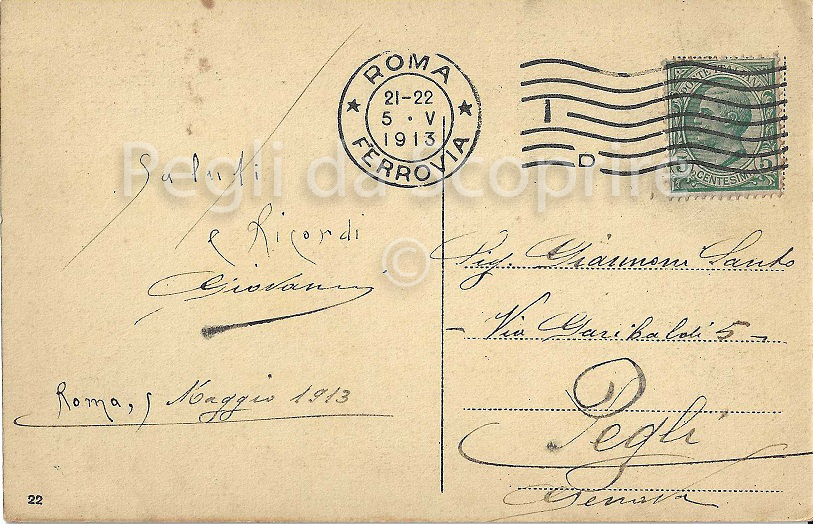 ROMA
21-22
5 · V
1913
FERROVIA
D
5 CENTESIMI 5
Pegli da scoprire
©
Saluti
e Ricordi
Giovanni
Roma, 5 Maggio 1913
22
Sig. Giannoni Santo
- Via Garibaldi 5 -
Pegli
Genova